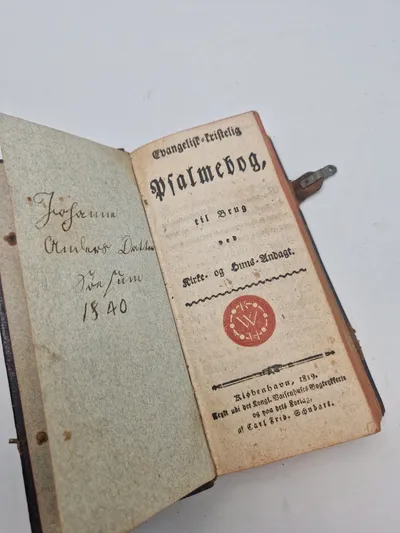 Johanne
Anders Datter
1840
Evangelisk-kristelig
Psalmebog,
til Brug
ved
Kirke- og Huus-Andagt.
W
Kiøbenhavn, 1819.
Trykt udi det Kongl. Vaisenhuses Bogtrykkerie
og paa dets Forlag,
af Carl Frid. Schubart.